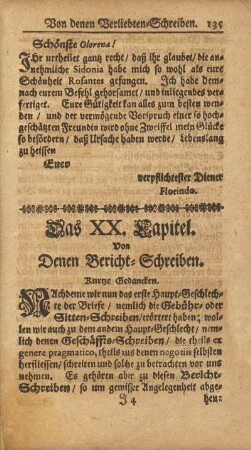 Von denen Verliebten-Schreiben. 135
Schönste Olorena!
IHr urtheilet gantz recht/ daß ihr glaubet/ die an-
nehmliche Sidonia habe mich so wohl als eure
Schönheit Rosantes gefangen. Ich habe dem-
nach eurem Befehl gehorsamet/ und inliegendes ver-
fertiget. Eure Gütigkeit kan alles zum besten wen-
den/ und der vermögende Vorspruch einer so hoch-
geschätzten Freundin wird ohne Zweiffel mein Glücke
so befördern/ daß Ursache haben werde/ lebenslang
zu heissen
Euer
verpflichtester Diener
Florindo.
Das XX. Capitel.
Von
Denen Bericht-Schreiben.
Kurtze Gedancken.
NAchdeme wir nun das erste Haupt-Geschlech-
te der Briefe/ nemlich die Gebühr- oder
Sitten-Schreiben/erörtert haben; wol-
len wir auch zu dem andern Haupt-Geschlecht/ nem-
lich denen Geschäffts-Schreiben/ die theils ex
genere pragmatico, theils aus denen negotiis selbsten
herfliessen/ schreiten und solche zu betrachten vor uns
nehmen. Es gehören aber zu diesen Bericht-
Schreiben/ so um gewisser Angelegenheit abge-
J 4 hen: